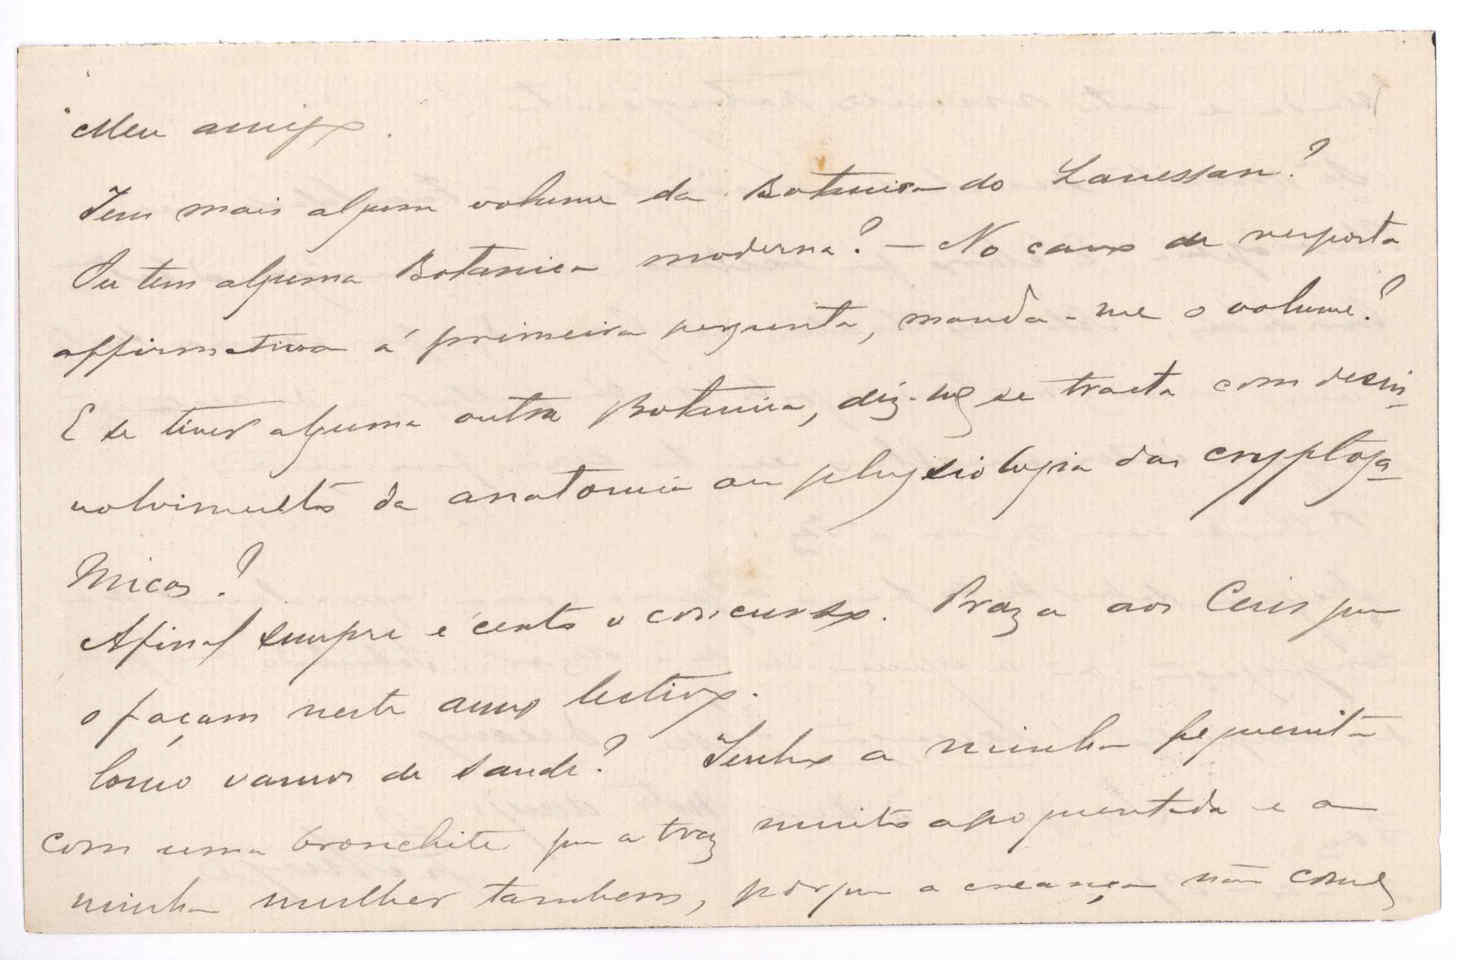 Meu amigo.
Tem mais algum volume da Botanica do Lanessan?
Ou tem alguma Botanica moderna? — No caso de resposta
affirmativa á primeira pergunta, manda-me o volume?
E se tiver alguma outra Botanica, diz-me se tracta com desin-
volvimento da anatomia ou physiologia das cryptoga-
micas?
Afinal sempre é certo o concurso. Praza aos Ceus que
o façam neste anno lectivo.
Como vamos de saude? Tenho a minha pequenita
com uma bronchite que a traz muito apoquentada e a
minha mulher tambem, porque a creança não come